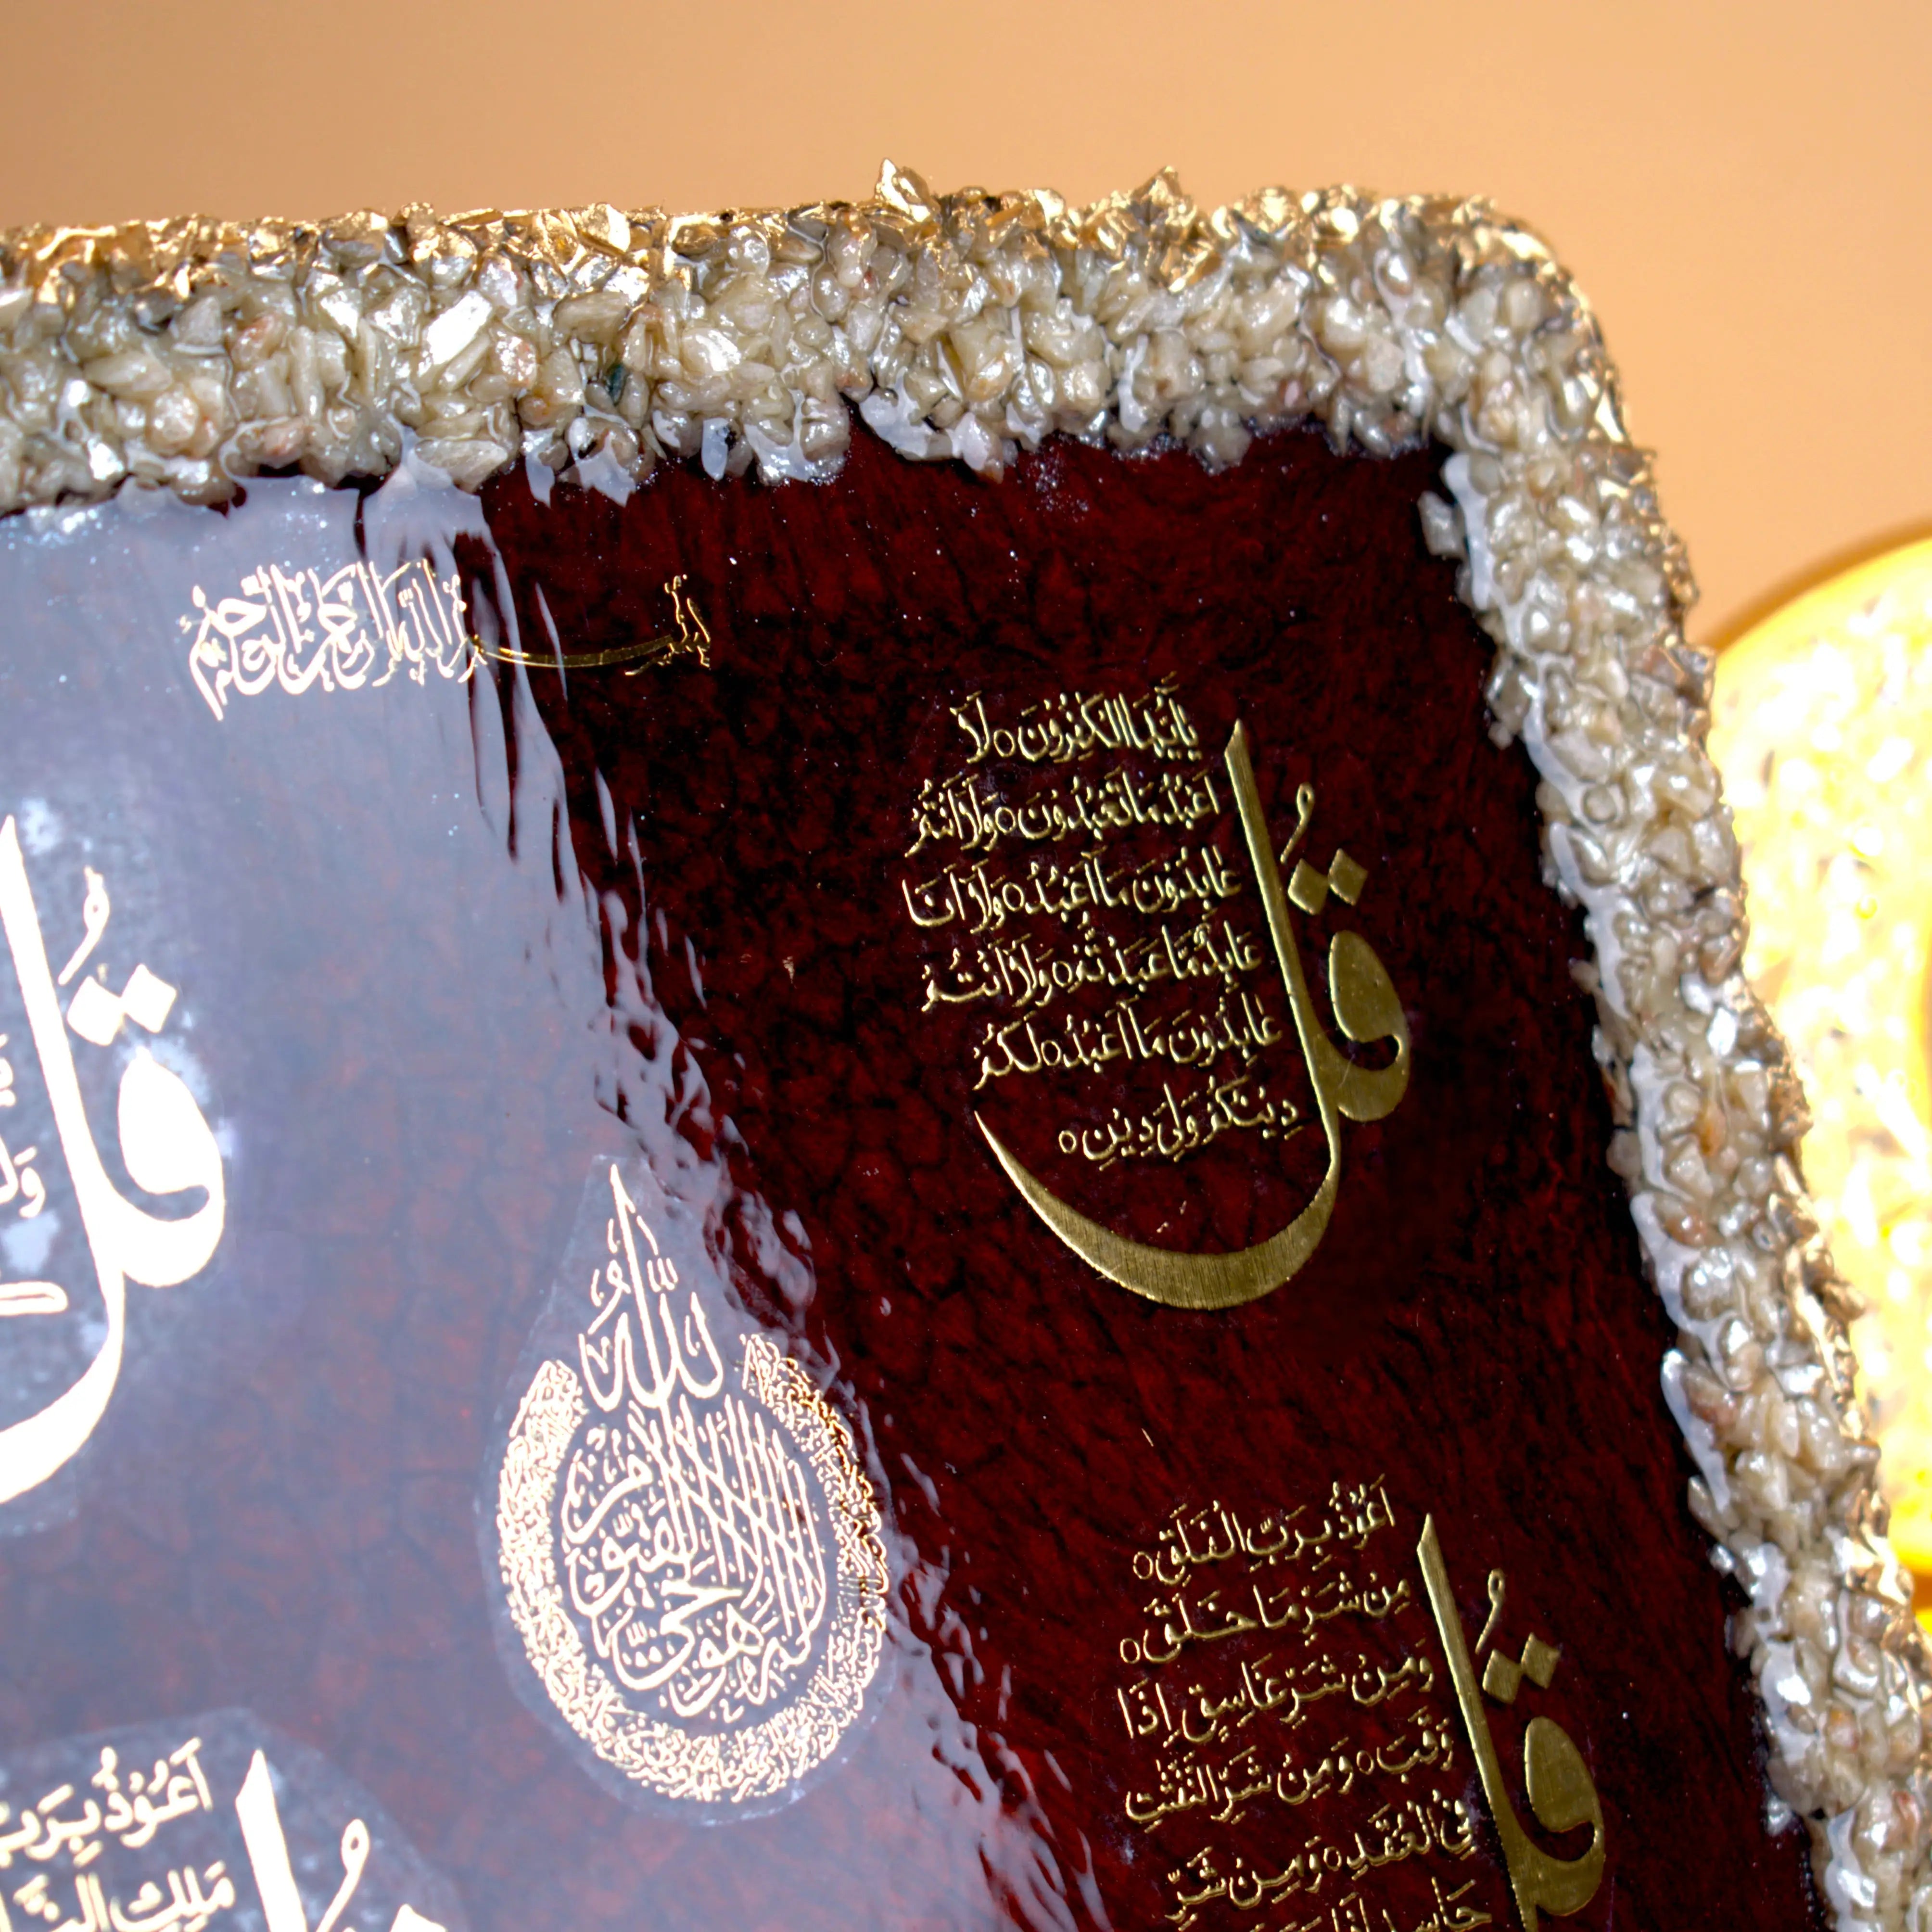 بِسْمِ اللهِ الرَّحْمٰنِ الرَّحِيْمِ
قُلْ
يٰاَيُّهَا الْكٰفِرُوْنَ ○ لَآ
اَعْبُدُ مَا تَعْبُدُوْنَ ○ وَلَآ اَنْتُمْ
عٰبِدُوْنَ مَآ اَعْبُدُ ○ وَلَآ اَنَا
عَابِدٌ مَّا عَبَدْتُّمْ ○ وَلَآ اَنْتُمْ
عٰبِدُوْنَ مَآ اَعْبُدُ ○ لَكُمْ
دِيْنُكُمْ وَلِيَ دِيْنِ ○
قُلْ
اَللهُ
لَآ اِلٰهَ اِلَّا هُوَ الْحَيُّ الْقَيُّوْمُ
قُلْ
اَعُوْذُ بِرَبِّ الْفَلَقِ ○
مِنْ شَرِّ مَا خَلَقَ ○
وَمِنْ شَرِّ غَاسِقٍ اِذَا
وَقَبَ ○ وَمِنْ شَرِّ النَّفّٰثٰتِ
فِي الْعُقَدِ ○ وَمِنْ شَرِّ
حَاسِدٍ اِذَا
قُلْ
اَعُوْذُ بِرَبِّ
مَلِكِ